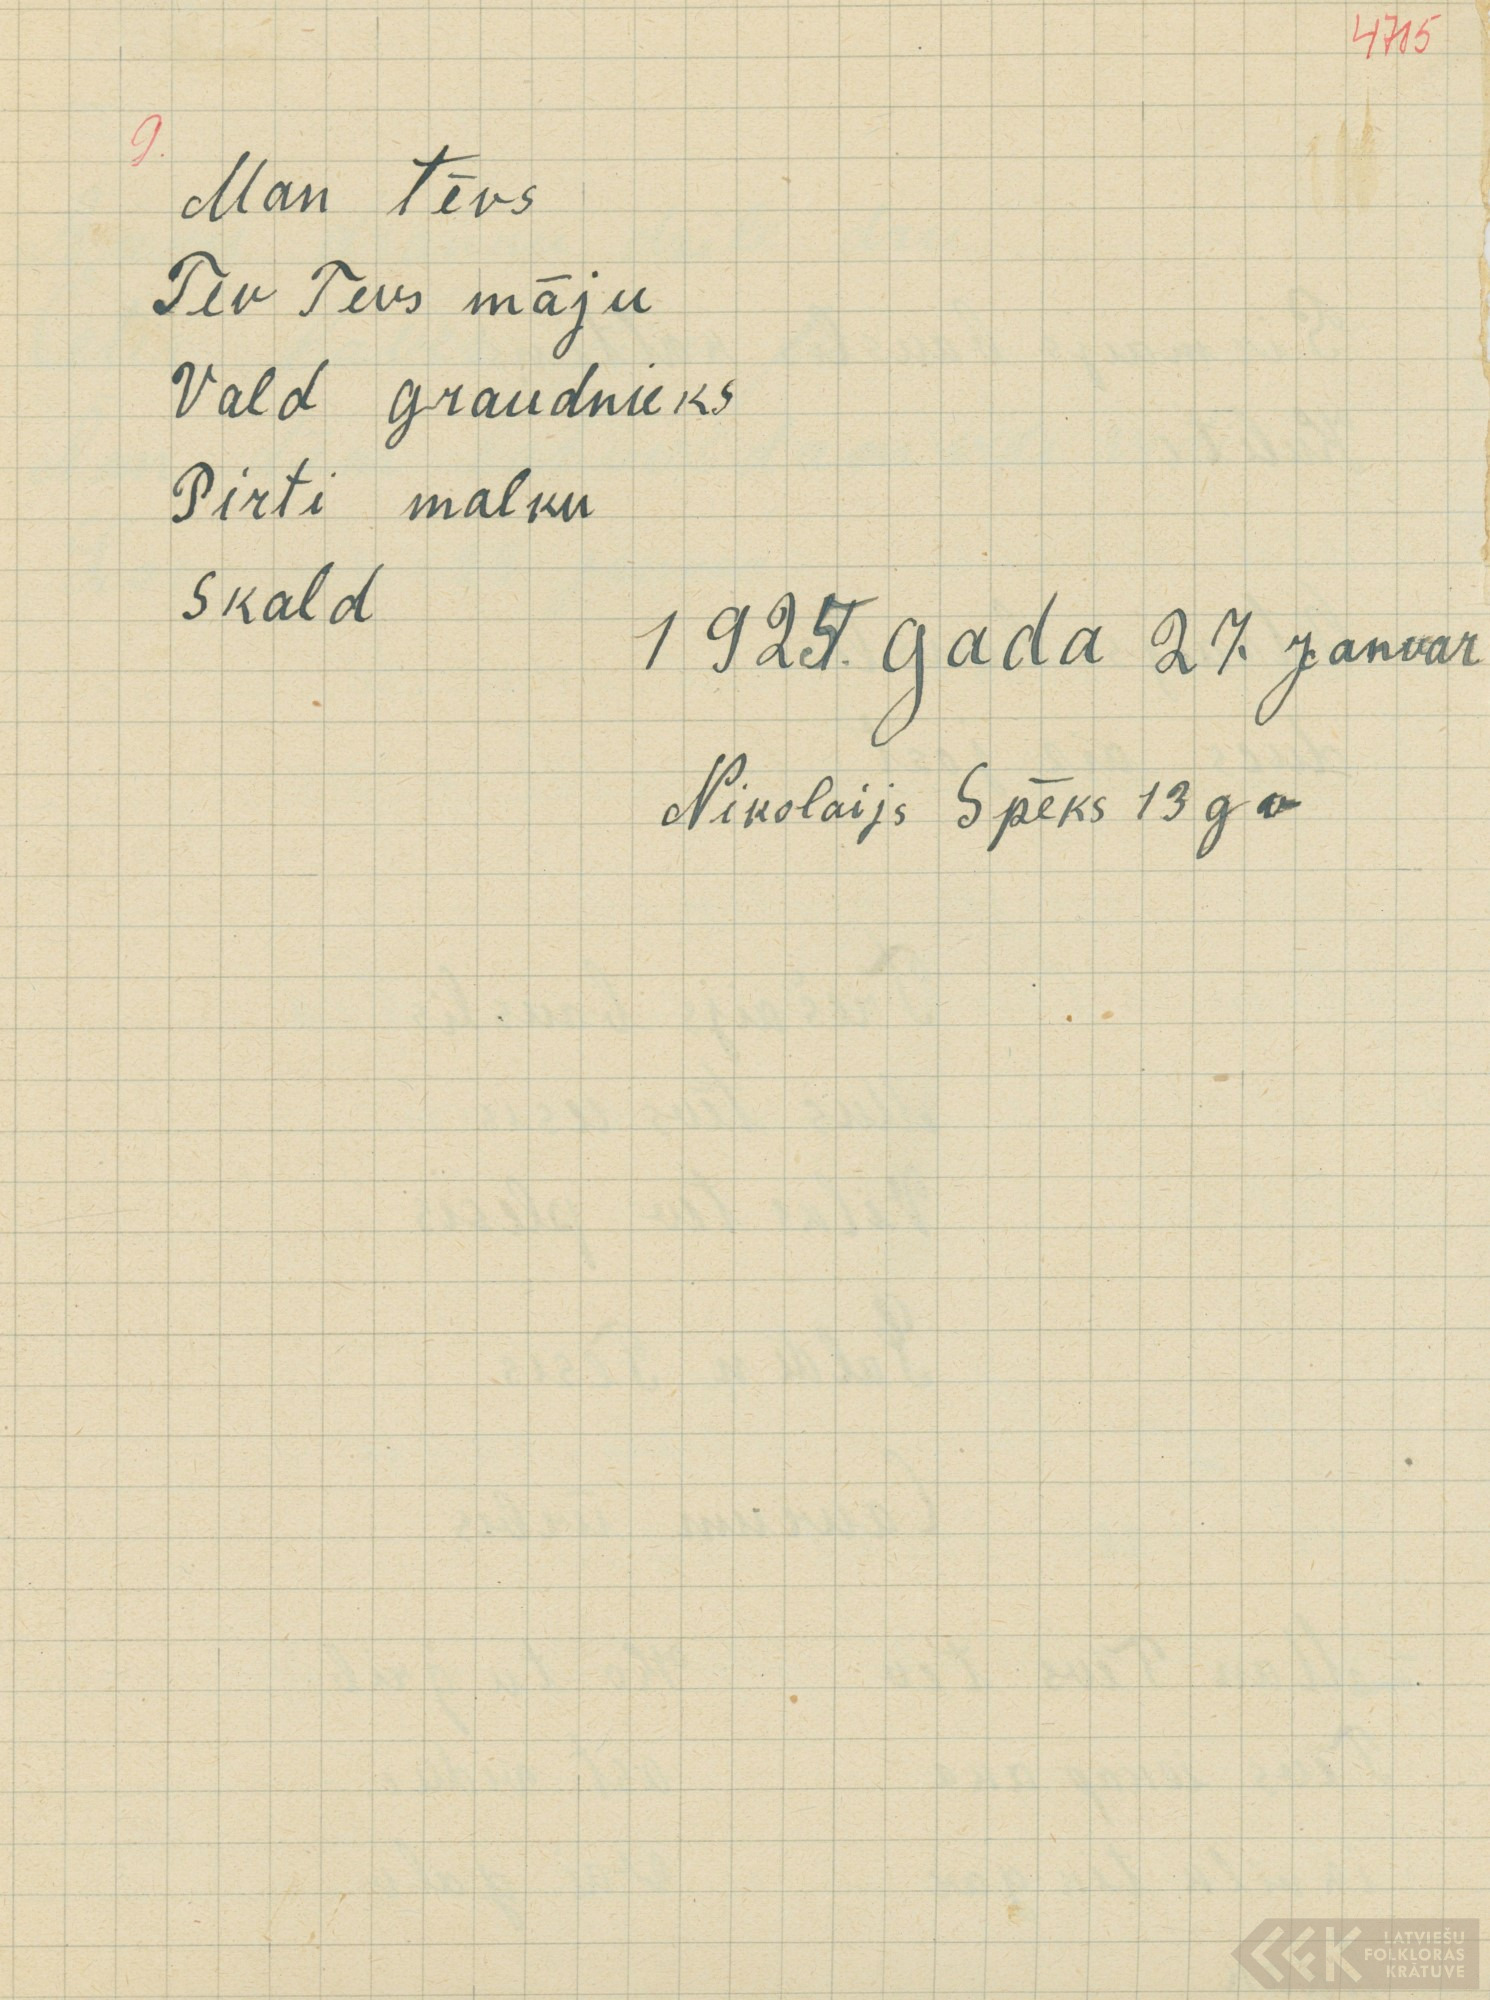 4715
9.
Man tēvs
Tev Tevs māju
Vald graudnieks
Pirti malku
Skald
1925. gada 27. janvar
Nikolaijs Spēks 13 g
LATVIEŠU
FOLKLORAS
KRĀTUVE